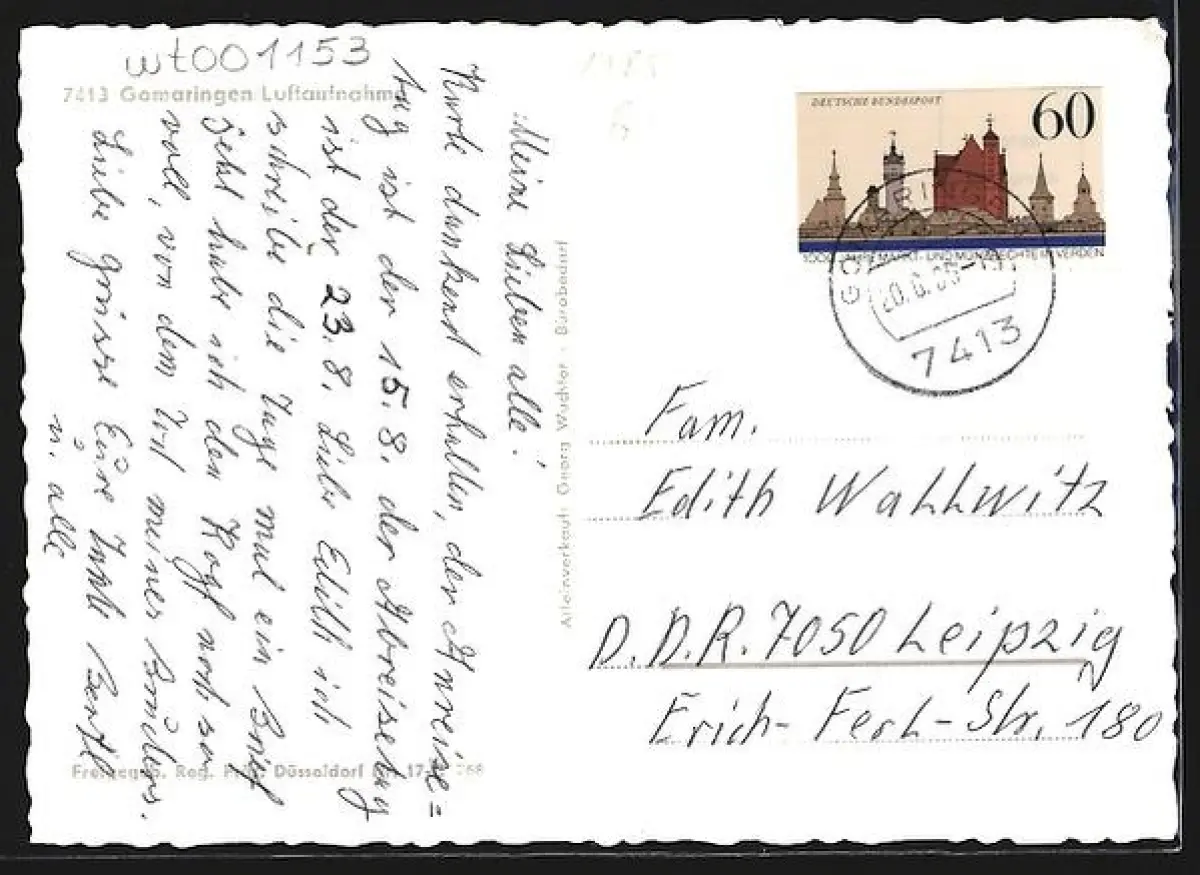 wt001153
7413 Gomaringen Luftaufnahme
Meine Lieben alle!
Karte dankend erhalten, der Anreise=
tag ist der 15.8. der Abreisetag
ist der 23.8. Liebe Edith ich
schreibe die Tage mal ein Brief
Jetzt habe ich den Kopf noch so
voll, von dem Tod meines Bruders.
Liebe grüsse Eure Tante Bertl
u. alle
Freigegeb. Reg. Präs. Düsseldorf
Alleinverkauf: Georg Wuchter · Bürobedarf
DEUTSCHE BUNDESPOST
60
1000 JAHRE MARKT- UND MÜNZRECHTE IN VERDEN
7413
Fam.
Edith Wahlwitz
D.D.R. 7050 Leipzig
Erich-Ferl-Str. 180